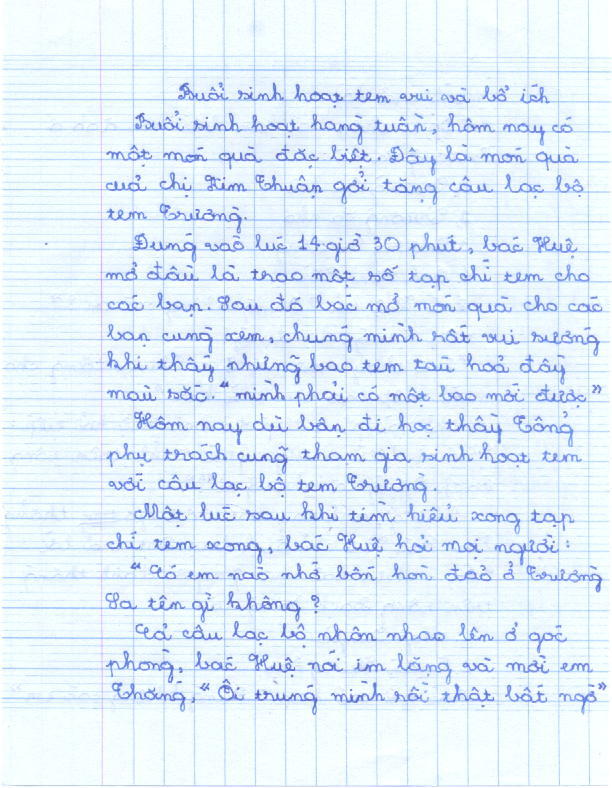 Buổi sinh hoạt tem vui và bổ ích
Buổi sinh hoạt hàng tuần, hôm nay có
một món quà đặc biệt. Đây là món quà
của chị Kim Thuận gởi tặng câu lạc bộ
tem Trường.
Đúng vào lúc 14 giờ 30 phút, bác Huệ
mở đầu là trao một số tạp chí tem cho
các bạn. Sau đó bác mở món quà cho các
bạn cùng xem, chúng mình rất vui sướng
khi thấy những bao tem tàu hoả đầy
màu sắc. "mình phải có một bao mới được"
Hôm nay dù bận đi học thầy Tổng
phụ trách cũng tham gia sinh hoạt tem
với câu lạc bộ tem Trường.
Một lúc sau khi tìm hiểu xong tạp
chí tem xong, bác Huệ hỏi mọi người:
"Có em nào nhớ bốn hòn đảo ở Trường
Sa tên gì không?
Cả câu lạc bộ nhôn nhao lên ở góc
phòng, bác Huệ nói im lặng và mời em
Thắng, "Ôi trúng mình rồi thật bất ngờ"